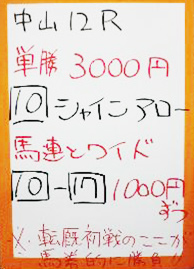 中山12R
単勝 3000円
10 シャインアロー
馬連とワイド
10-17 1000円
ずつ
※転厩初戦のここが
馬券的に勝負か